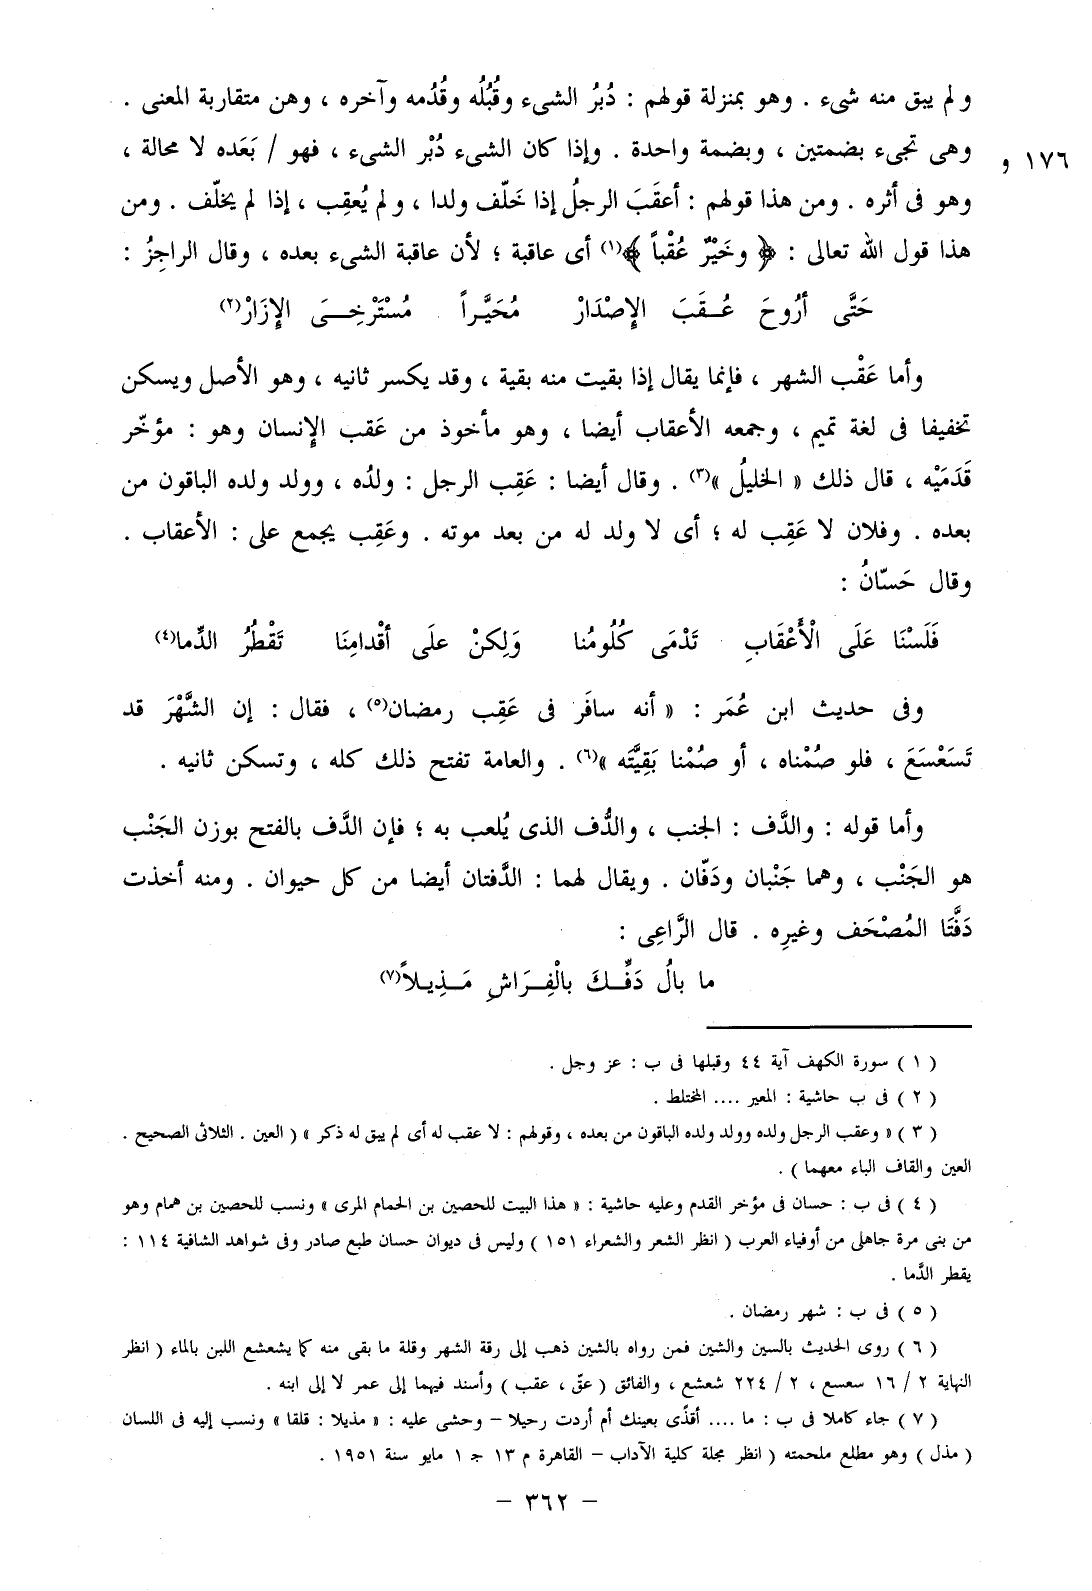 ولم يبق منه شىء . وهو بمنزلة قولهم : دُبُرُ الشىء وقُبُلُه وقُدُمه وآخره ، وهن متقاربة المعنى .
وهى تجىء بضمتين ، وبضمة واحدة . وإذا كان الشىء دُبْر الشىء ، فهو / بَعَده لا محالة ،
١٧٦ و
وهو فى أثره . ومن هذا قولهم : أعقَبَ الرجلُ إذا خَلّف ولدا ، ولم يُعقِب ، إذا لم يخلّف . ومن
هذا قول الله تعالى : ﴿ وخَيْرٌ عُقْباً ﴾(١) أى عاقبة ؛ لأن عاقبة الشىء بعده ، وقال الراجِزُ :
حَتَّى أرُوحَ عُـقَبَ الإصْدَارْ مُحَيَّراً مُسْتَرْخِـىَ الإزَارْ(٢)
وأما عَقْب الشهر ، فإنما يقال إذا بقيت منه بقية ، وقد يكسر ثانيه ، وهو الأصل ويسكن
تخفيفا فى لغة تميم ، وجمعه الأعقاب أيضا ، وهو مأخوذ من عَقب الإنسان وهو : مؤخّر
قَدَمَيْه ، قال ذلك « الخليلُ »(٣) . وقال أيضا : عَقِب الرجل : ولدُه ، وولد ولده الباقون من
بعده . وفلان لا عَقِب له ؛ أى لا ولد له من بعد موته . وعَقِب يجمع على : الأعقاب .
وقال حَسّانُ :
فَلَسْنَا عَلَى الْأَعْقَابِ تَدْمَى كُلُومُنا وَلكِنْ علَى أقْدامِنَا تَقْطُرُ الدِّما(٤)
وفى حديث ابن عُمَر : « أنه سافَر فى عَقِب رمضان(٥) ، فقال : إن الشَّهْرَ قد
تَسَعْسَعَ ، فلو صُمْناه ، أو صُمْنا بَقِيَّتَه »(٦) . والعامة تفتح ذلك كله ، وتسكن ثانيه .
وأما قوله : والدَّف : الجنب ، والدُّف الذى يُلعب به ؛ فإن الدَّف بالفتح بوزن الجَنْب
هو الجَنْب ، وهما جَنْبان ودَفّان . ويقال لهما : الدَّفتان أيضا من كل حيوان . ومنه أخذت
دَفَّتَا المُصْحَف وغيرِه . قال الرَّاعِى :
ما بالُ دَفِّـكَ بالْفِـرَاشِ مَـذِيـلاً(٧)
( ١ ) سورة الكهف آية ٤٤ وقبلها فى ب : عز وجل .
( ٢ ) فى ب حاشية : المعير .... المختلط .
( ٣ ) « وعقب الرجل ولده وولد ولده الباقون من بعده ، وقولهم : لا عقب له أى لم يبق له ذكر » ( العين . الثلاثى الصحيح .
العين والقاف الباء معهما ) .
( ٤ ) فى ب : حسان فى مؤخر القدم وعليه حاشية : « هذا البيت للحصين بن الحمام المرى » ونسب للحصين بن همام وهو
من بنى مرة جاهلى من أوفياء العرب ( انظر الشعر والشعراء ١٥١ ) وليس فى ديوان حسان طبع صادر وفى شواهد الشافية ١١٤ :
يقطر الدَّما .
( ٥ ) فى ب : شهر رمضان .
( ٦ ) روى الحديث بالسين والشين فمن رواه بالشين ذهب إلى رقة الشهر وقلة ما بقى منه كما يشعشع اللبن بالماء ( انظر
النهاية ٢ / ١٦ سعسع ، ٢ / ٢٢٤ شعشع ، والفائق ( عق ، عقب ) وأسند فيهما إلى عمر لا إلى ابنه .
( ٧ ) جاء كاملا فى ب : ما .... أقذًى بعينك أم أردت رحيلا – وحشى عليه : « مذيلا : قلقا » ونسب إليه فى اللسان
( مذل ) وهو مطلع ملحمته ( انظر مجلة كلية الآداب – القاهرة م ١٣ جـ ١ مايو سنة ١٩٥١ .
– ٣٦٢ –